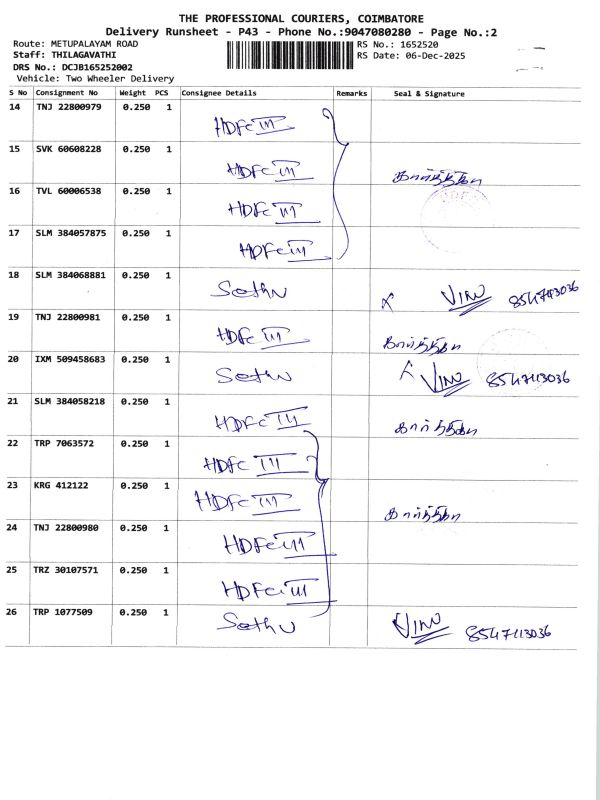 THE PROFESSIONAL COURIERS, COIMBATORE
Delivery Runsheet - P43 - Phone No.:9047080280 - Page No.:2
Route: METUPALAYAM ROAD RS No.: 1652520
Staff: THILAGAVATHI RS Date: 06-Dec-2025
DRS No.: DCJB165252002
Vehicle: Two Wheeler Delivery
S No Consignment No Weight PCS Consignee Details Remarks Seal & Signature
14 TNJ 22800979 0.250 1 HDFC III
15 SVK 60608228 0.250 1 HDFC III கார்த்திகா
16 TVL 60006538 0.250 1 HDFC III
17 SLM 384057875 0.250 1 HDFC III
18 SLM 384068881 0.250 1 Sethu VINU
19 TNJ 22800981 0.250 1 HDFC III கார்த்திகா
20 IXM 509458683 0.250 1 Sethu VINU 8547113036
21 SLM 384058218 0.250 1 HDFC III கார்த்திகா
22 TRP 7063572 0.250 1 HDFC III
23 KRG 412122 0.250 1 HDFC III கார்த்திகா
24 TNJ 22800980 0.250 1 HDFC III
25 TRZ 30107571 0.250 1 HDFC III
26 TRP 1077509 0.250 1 Sethu VINU 8547113036